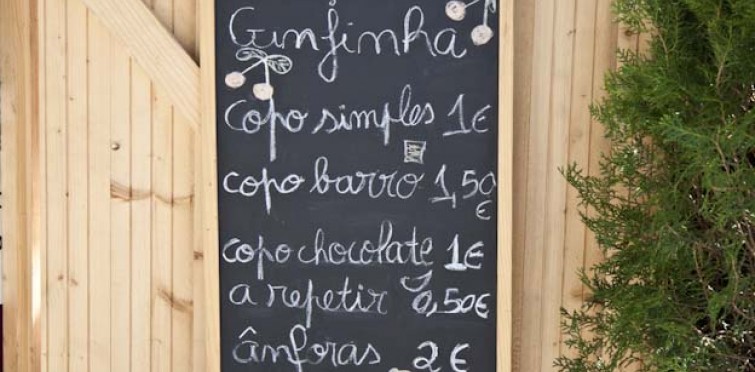 Ginjinha
copo simples 1€
copo barro 1,50
€
copo chocolate 1€
a repetir 0,50€
ânforas 2€